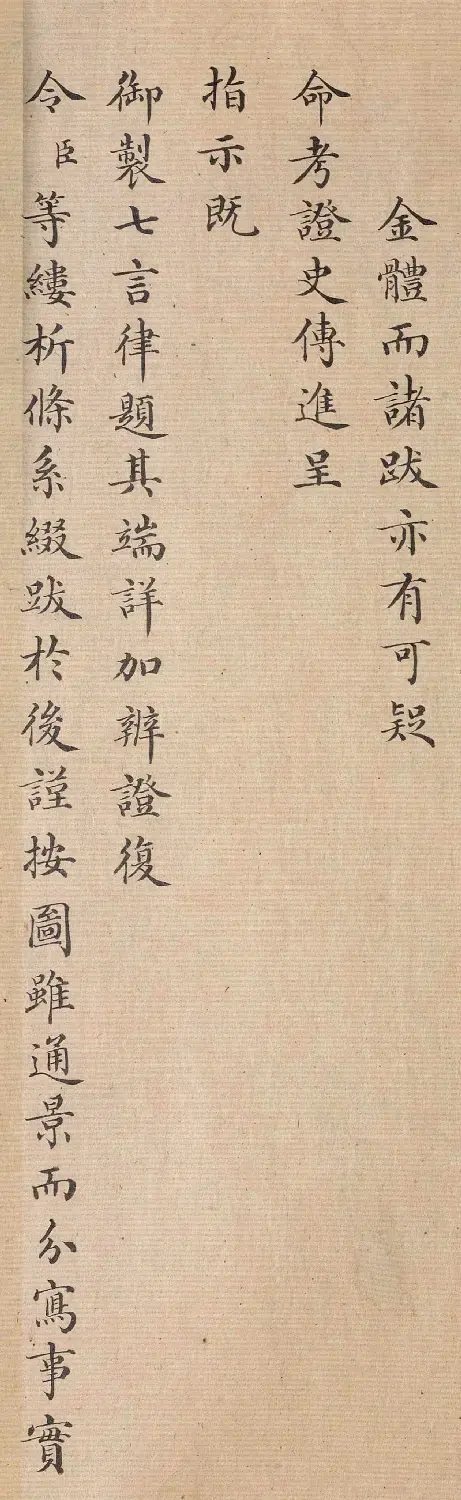 金體而諸跋亦有可疑
命考證史傳進呈
指示既
御製七言律題其端詳加辨證復
令臣等縷析條系綴跋於後謹按圖雖通景而分寫事實